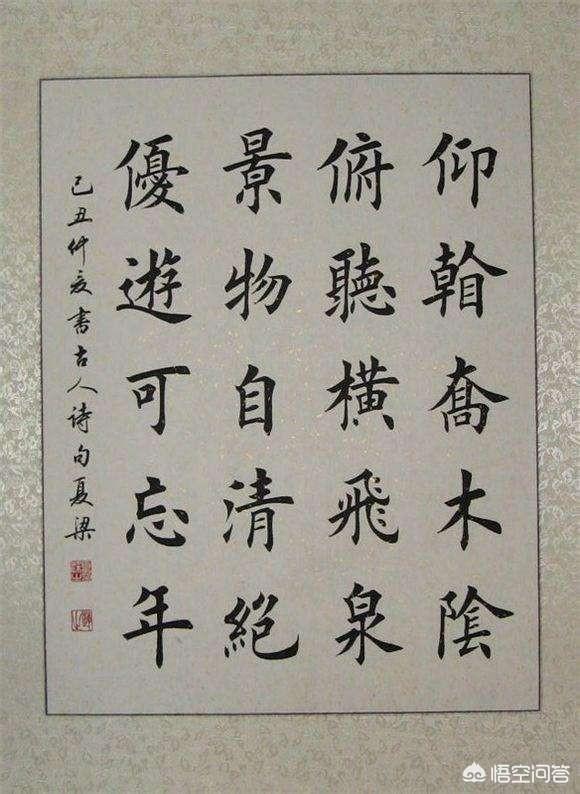 仰喬木陰
俯聽橫飛泉
景物自清絕
優遊可忘年
己丑仲夏書古人诗句夏梁
悟空问答